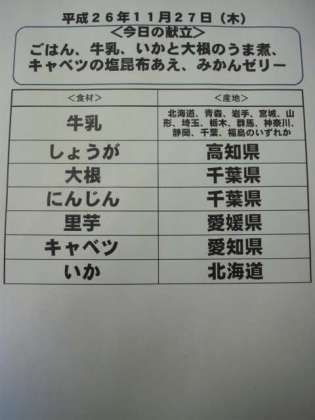 平成２６年１１月２７日（木）
＜今日の献立＞
ごはん、牛乳、いかと大根のうま煮、
キャベツの塩昆布あえ、みかんゼリー
＜食材＞ ＜産地＞
牛乳 北海道、青森、岩手、宮城、山
形、埼玉、栃木、群馬、神奈川、
静岡、千葉、福島のいずれか
しょうが 高知県
大根 千葉県
にんじん 千葉県
里芋 愛媛県
キャベツ 愛知県
いか 北海道